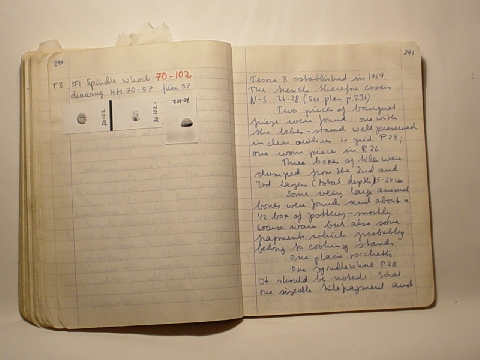 240
T8 IF1 Spindle whorls 70-102
drawing HH.70-57 film 57
241
Tesoro 8 established in 1969
The trench therefore covers
N-S 26-28 (see plan p. 236)
Two pieces of banquet
frieze were found: one with
the table-stand well preserved
in clear outlines in grid P.28;
one worn piece in P.26
Three boxes of tiles were
dumped from the 2nd and
3rd layers (total depth 15-20 cm
Some very large animal
bones were found and about a
1/2 box of pottery - mostly
coarse ware but also some
fragments which probably
belong to cooking stands.
One plain rocchetto
One spindle whorl P.28
It should be noted that
one sizeable tile fragment and